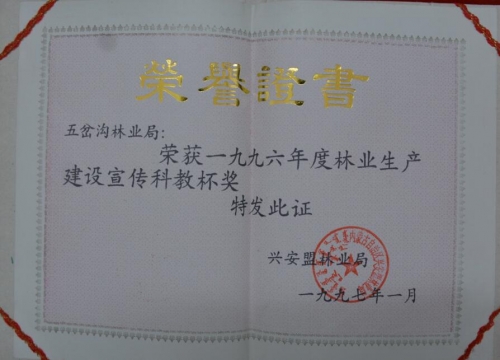 榮譽證書
五岔沟林业局:
荣获一九九六年度林业生产
建设宣传科教杯奖
特发此证
兴安盟林业局
一九九七年一月